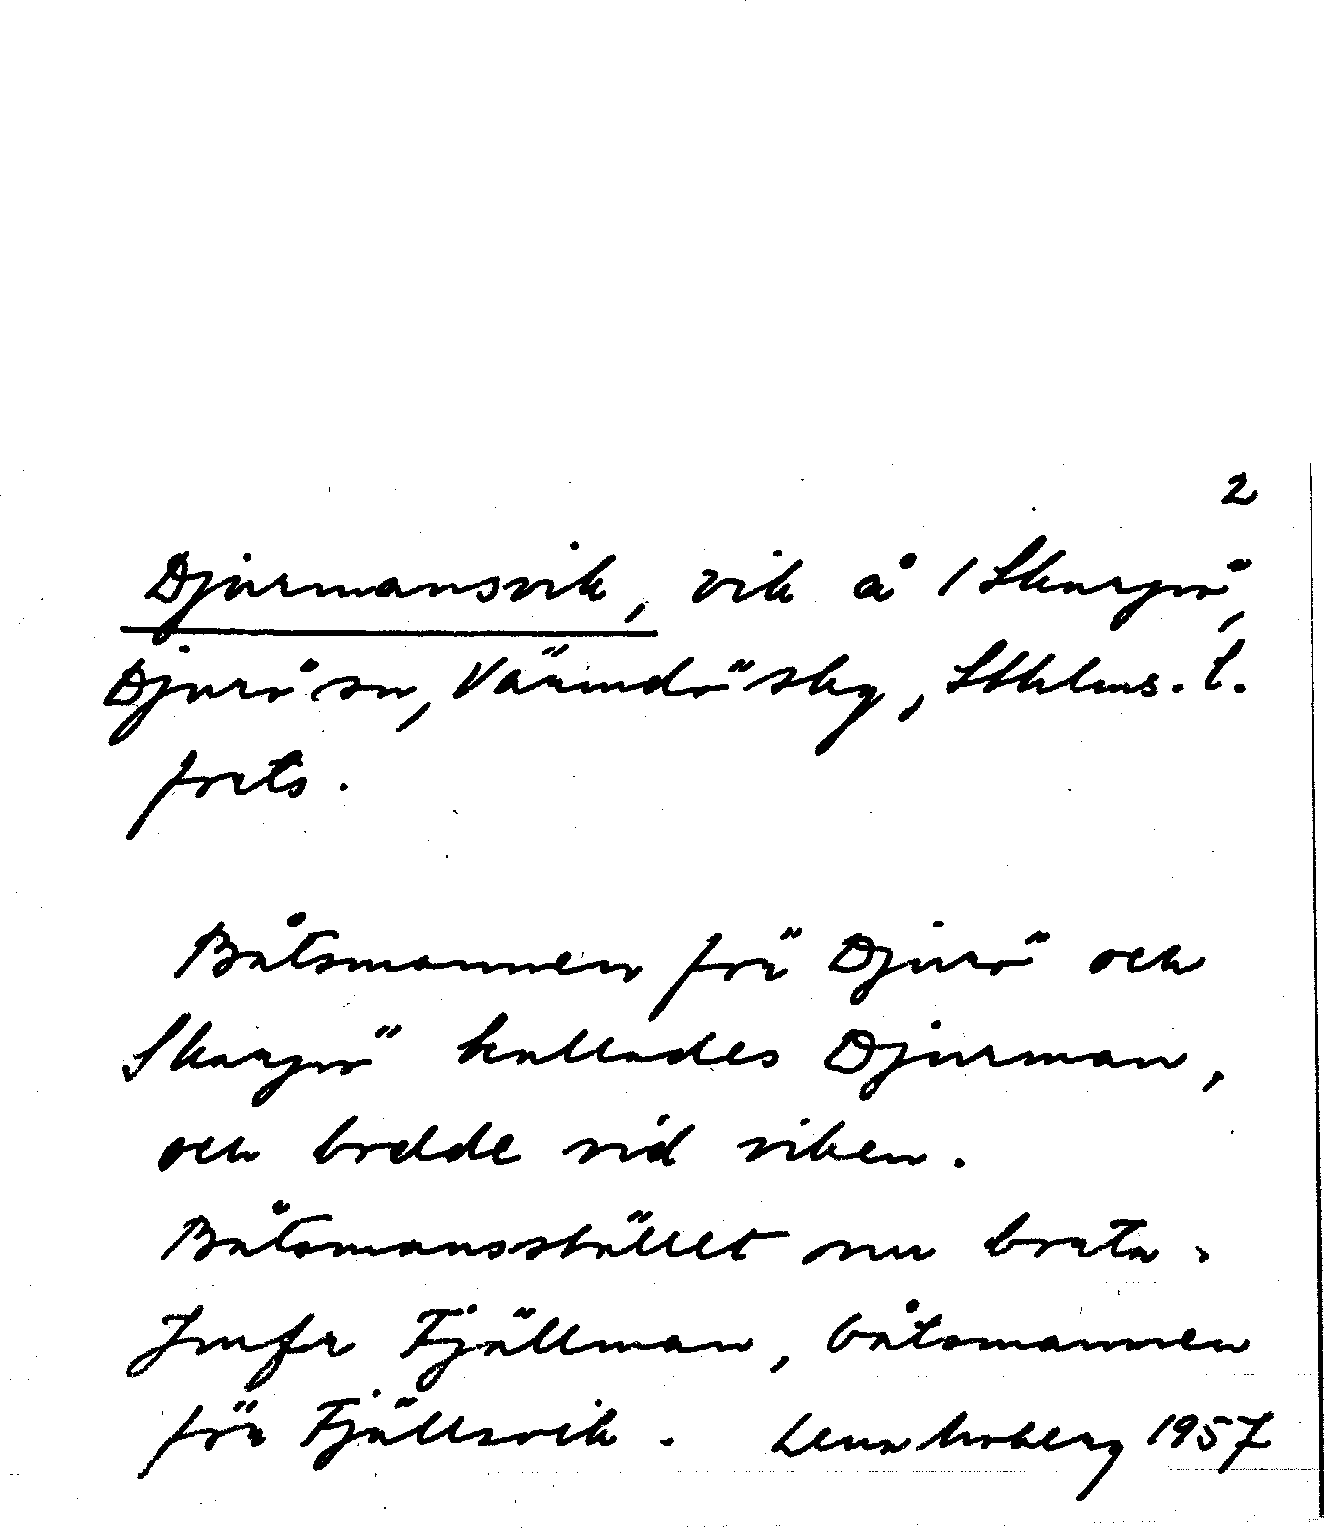 2
Djurmansvik, vik å / Skarpö,
Djurö sn, Värmdö skg, Sthlms. l.
forts.
Båtsmannen för Djurö och
Skarpö kallades Djurman,
och bodde vid viken.
Båtsmansstället nu borta.
Jmfr Fjällman, båtsmannen
för Fjällsvik. Lena Moberg 1957